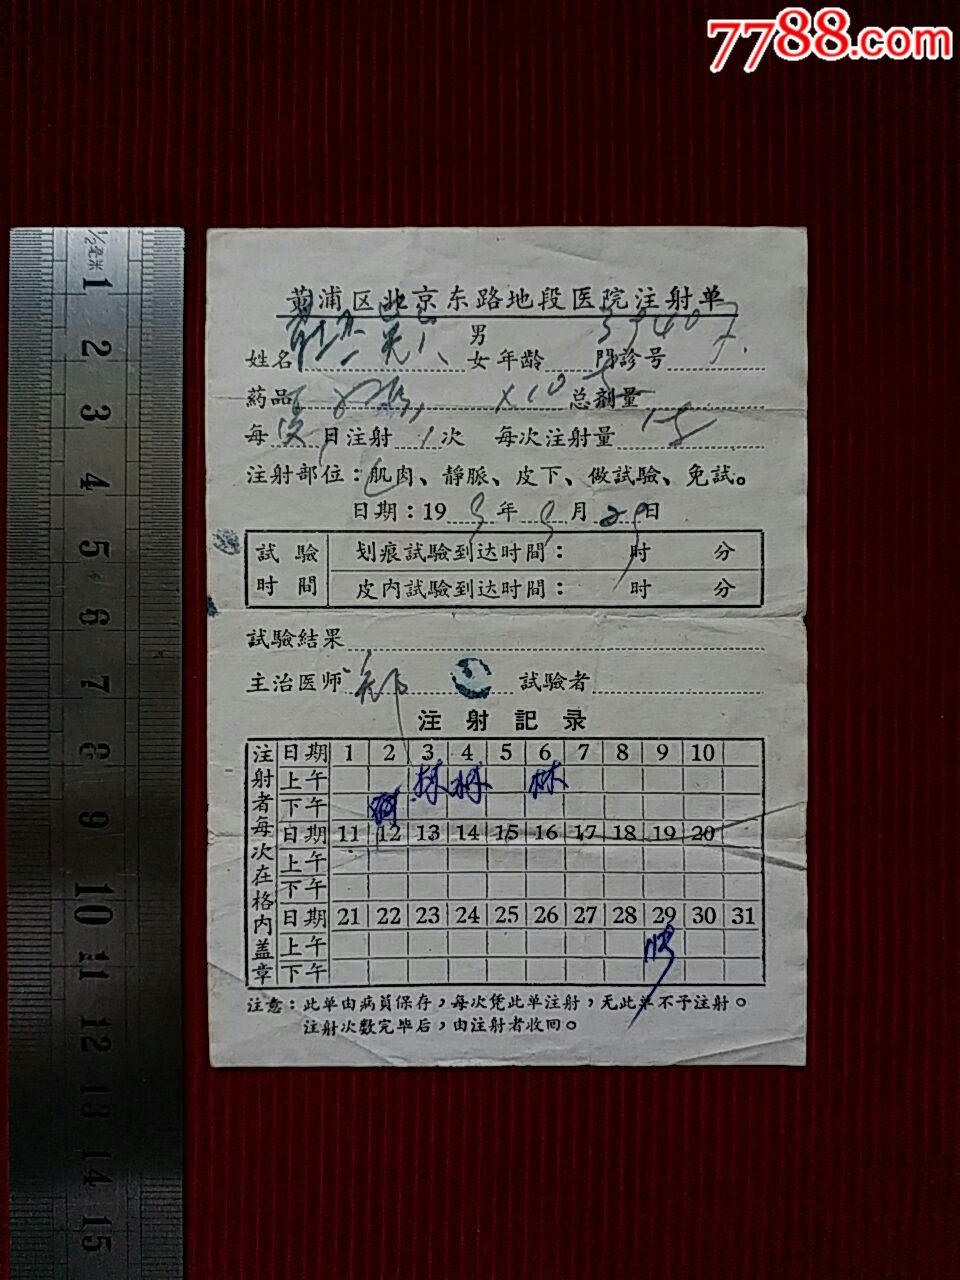 7788.com
1/2毫米 1 2 3 4 5 6 7 8 9 10 11 12 13 14 15
黄浦区北京东路地段医院注射单
姓名 男
女 年龄 門診号
葯品 X10 总剂量
每 日注射 1 次 每次注射量
注射部位：肌肉、靜脈、皮下、做試驗、免試。
日期：19 年 月 29 日
試驗時間 划痕試驗到达时間： 时 分
皮内試驗到达时間： 时 分
試驗結果
主治医师 試驗者
注射記录
注射者每次在格内盖章
日期 1 2 3 4 5 6 7 8 9 10
上午 林 林 林
下午
日期 11 12 13 14 15 16 17 18 19 20
上午
下午
日期 21 22 23 24 25 26 27 28 29 30 31
上午
下午
注意：此单由病員保存，每次凭此单注射，无此单不予注射。
注射次数完毕后，由注射者收回。